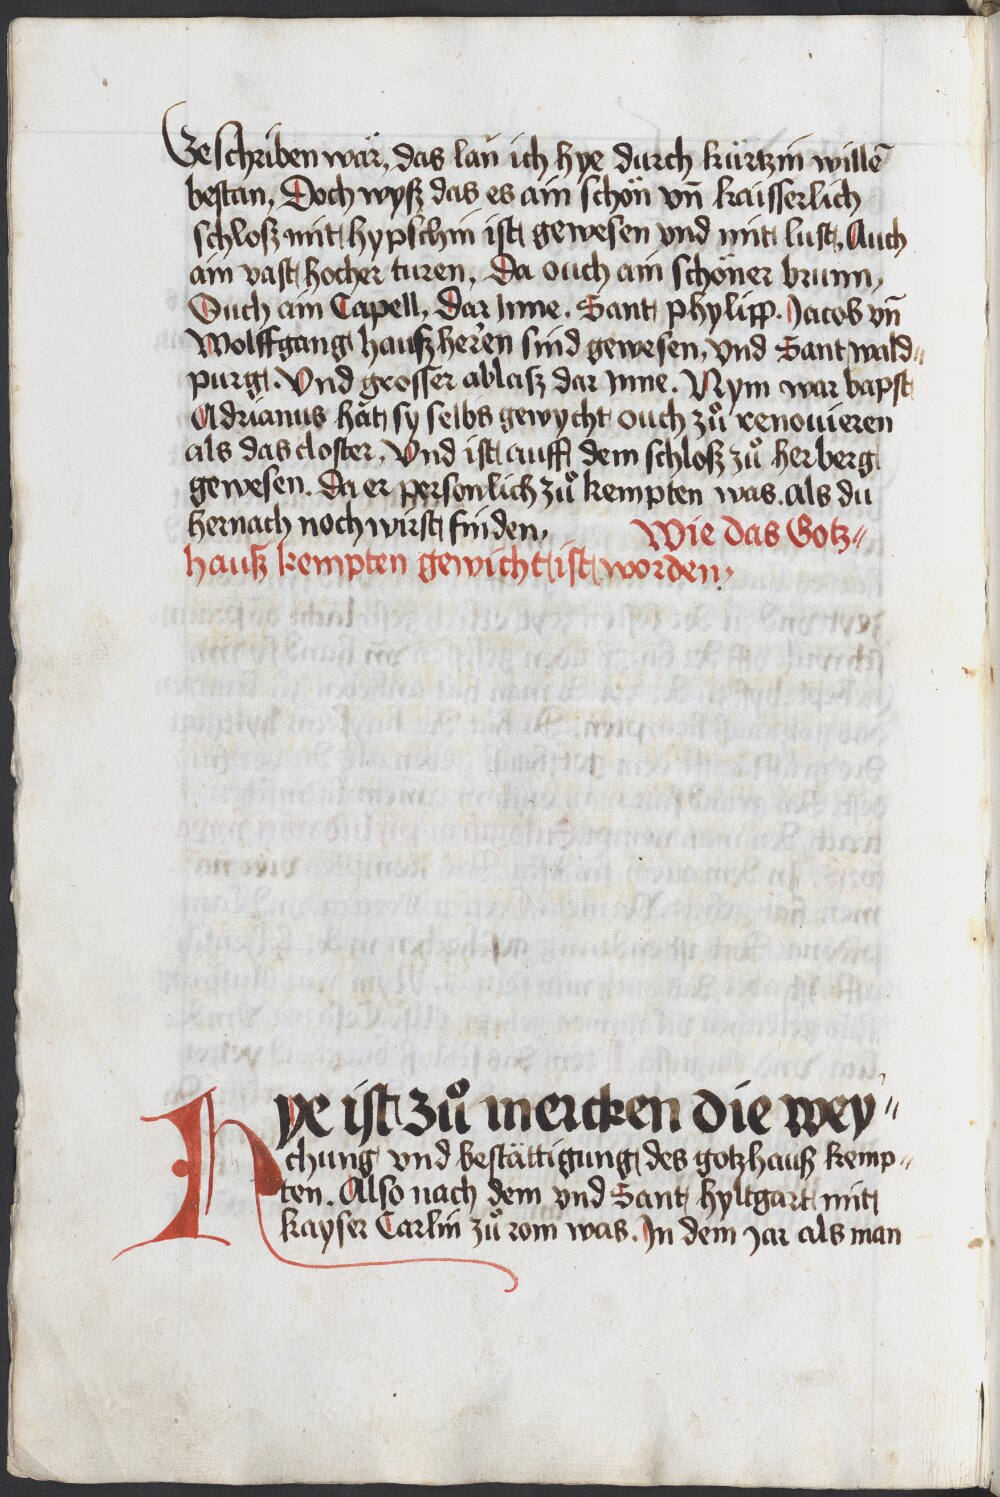 Geschriben wär, das lan̄ ich hye durch kürtzin willē
bestan, Doch wyß das es ain schön vn̄ kaisserlich
schloß mit hypschin ist gewesen vnd mit lust, Auch
ain vast hocher turen, Da ouch ain schöner brunn,
Ouch ain Capell, Dar Inne. Sant phylipp. Jacob vn̄
Wolffgang haußheren sind gewesen, Vnd Sant wald〃
purg. Vnd grosser ablasz dar Inne. Nym war bapst
Adrianus hät sy selbs gewycht ouch zů renouieren
als das closter, Vnd ist auff dem schloß zů herberg
gewesen. Da er personlich zů kempten was. als du
hernach noch wirst finden, Wie das Gotz〃
hauß kempten gewicht ist worden,
Hye ist zů mercken die wey〃
chung vnd bestättigung des gotzhauß kemp〃
ten. Also nach dem vnd Sant hyltgart mit
kayser Carlin zů rom was. In dem Jar als man